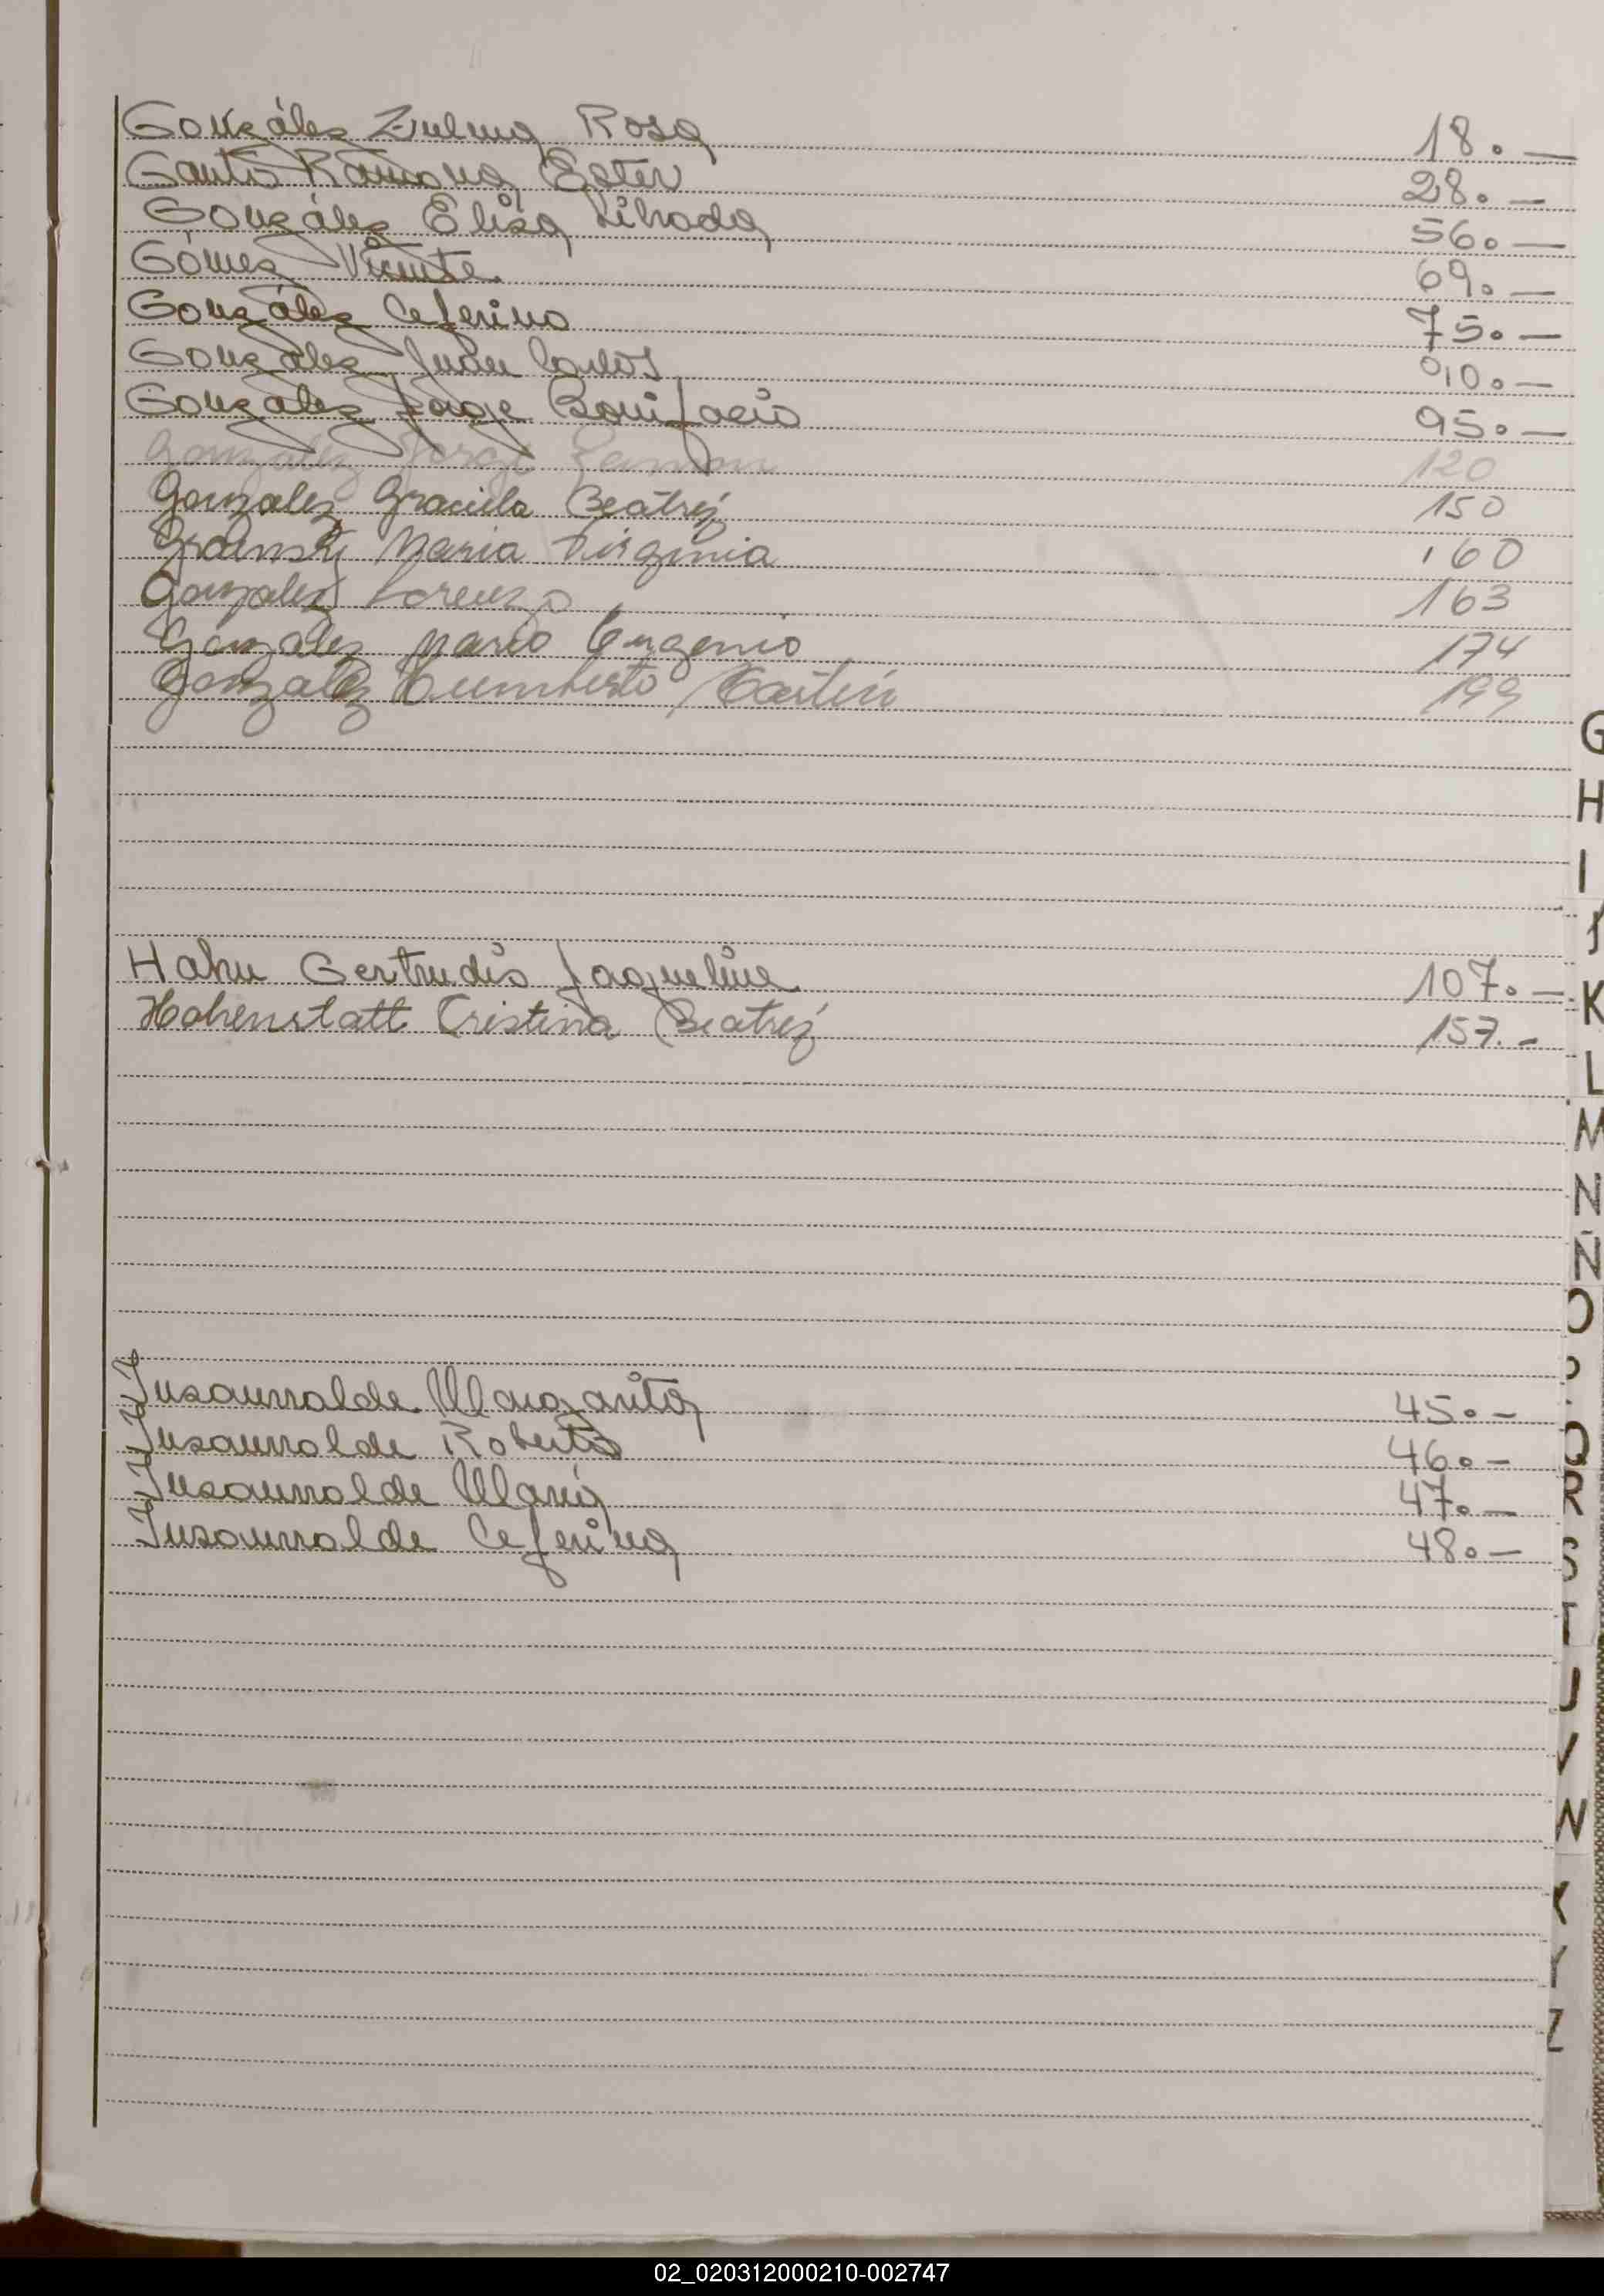 González Zulma Rosa 18.—
Gauto Ramona Ester 28.—
González Elisa Librada 56.—
Gómez Vicente 69.—
González Ceferino 75.—
González Juan Carlos 90.—
González Jorge Bonifacio 95.—
Gonzalez Jorge Ramon 120
Gonzalez Graciela Beatríz 150
Maria Virginia 160
Gonzalez Lorenzo 163
Gonzalez Mario Eugenio 174
Gonzalez Humberto Martin 199
G
H
I
J
Hahn Gertrudis Jaqueline 107.—
K
Hohenstatt Cristina Beatríz 157.-
L
M
N
Ñ
O
P
Insaurralde Margarita 45.-
Q
Insaurralde Roberto 46.-
R
Insaurralde María 47.—
Insaurralde Ceferina 48.—
S
T
U
V
W
X
Y
Z
02_020312000210-002747